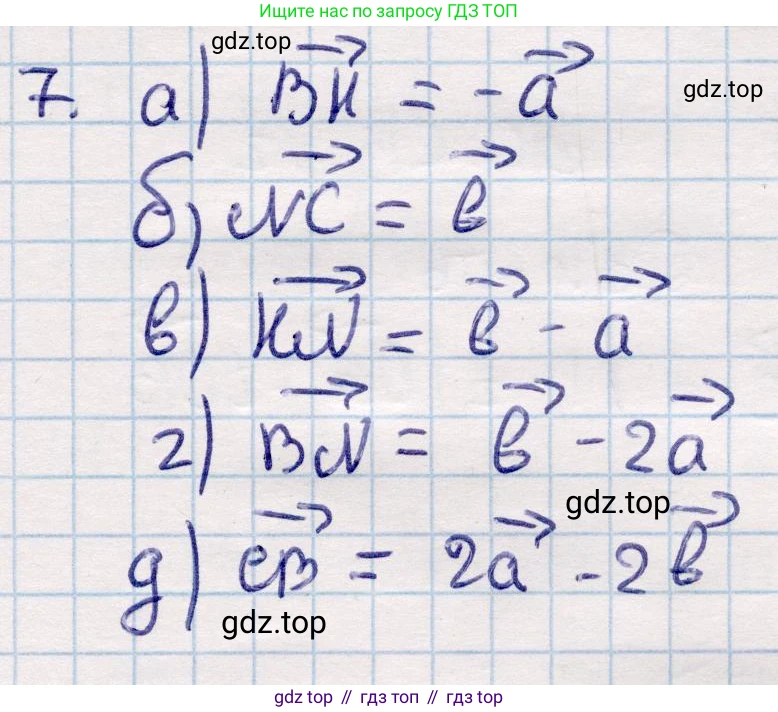 Ищите нас по запросу ГДЗ ТОП
gdz.top
7. а) ВК = -а
gdz.top
б) NC = в
в) KN = в - а
г) BN = в - 2а
gdz.top
д) СВ = 2а - 2в
gdz.top
gdz top // гдз топ // гдз top